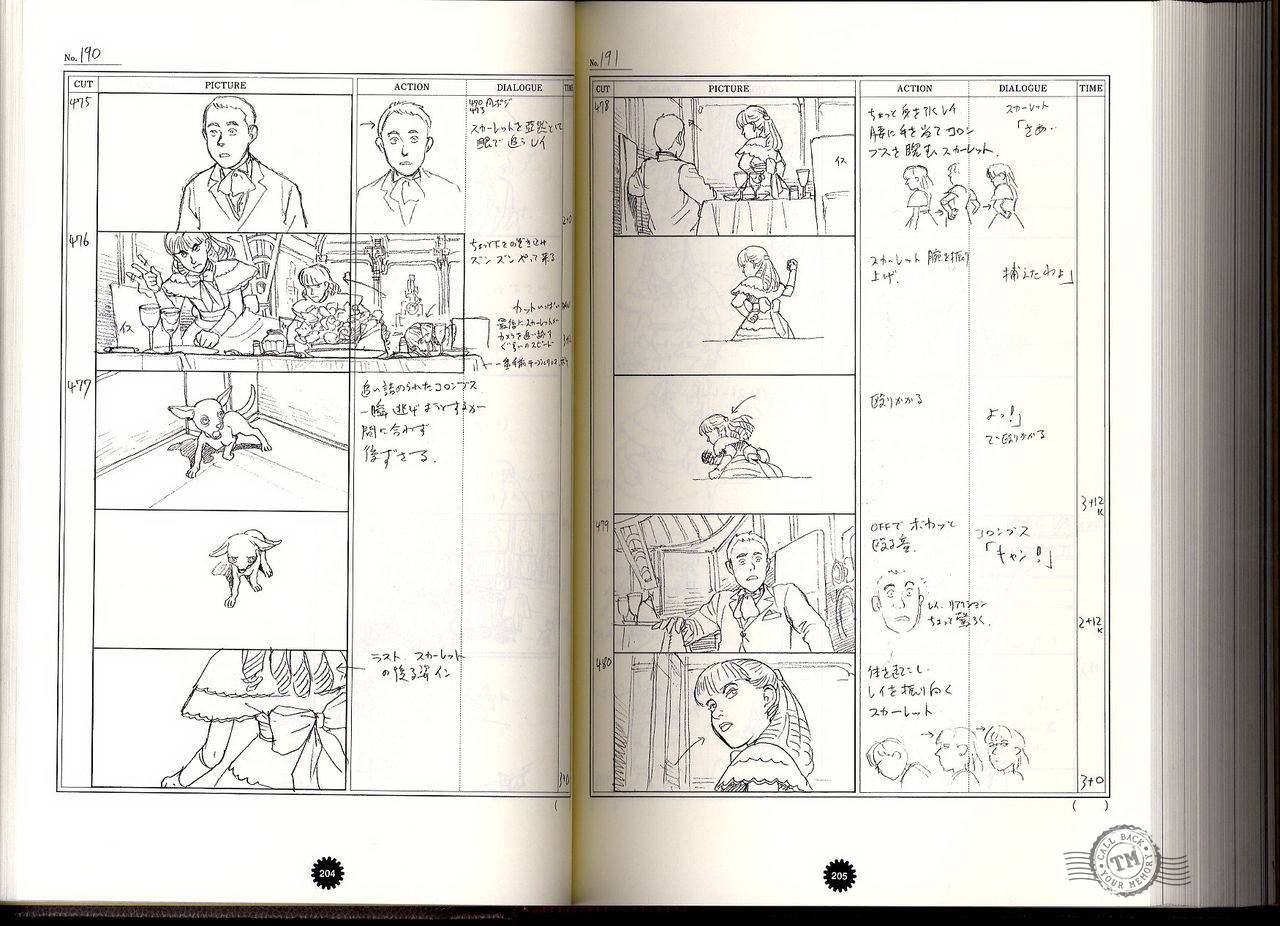 No. 190
CUT PICTURE ACTION DIALOGUE TIME
475
スカーレットを亜然として
眼で追うレイ
476
ちょっと下をのぞき込み
ズンズンやって来る
イス
カットいっぱい
最后にスカーレットが
カメラを追い越す
ぐらいのスピード
477
追い詰められたコロンブス
一瞬逃げようとするが
間に合わず
後ずさる.
ラスト スカーレット
の後ろ姿イン
3+0
204
No. 191
CUT PICTURE ACTION DIALOGUE TIME
478
イス
ちょっと身を引くレイ
腰に手を当てコロン
ブスを睨むスカーレット.
スカーレット
「さあ‥
スカーレット 腕を振り
上げ.
捕えたわよ」
殴りかかる
よっ!」
で殴りかかる
3+12
K
479
OFFで ボカッと
殴る音.
コロンブス
「キャン!」
レイ. リアクション
ちょっと驚ろく.
2+12
K
480
体を起こし
レイを振り向く
スカーレット
3+0
( )
205
CALL BACK
TM
YOUR MEMORY